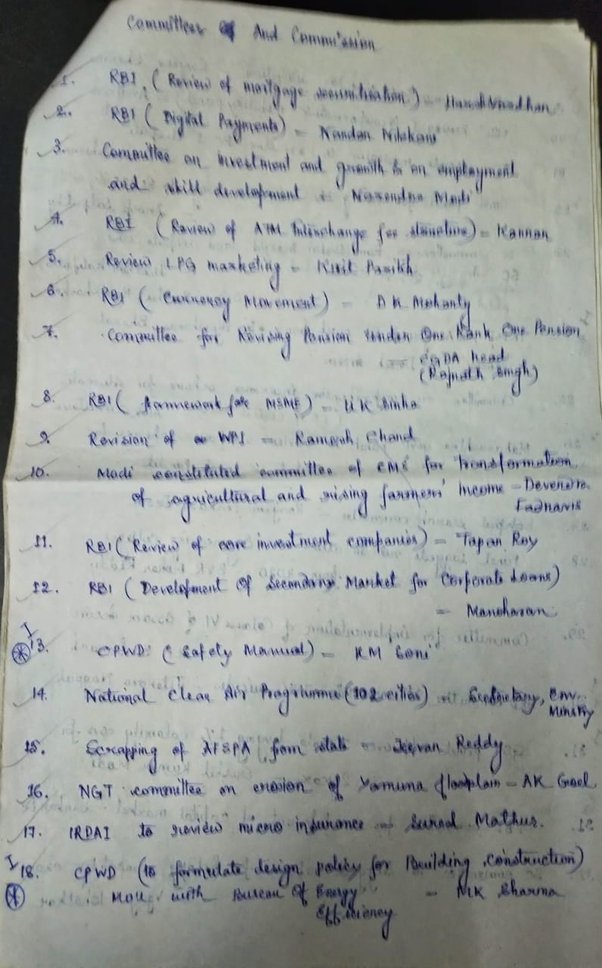 Committees And Commission
1. RBI (Review of mortgage securitisation) - Harsh Vardhan
2. RBI (Digital Payments) = Nandan Nilekani
3. Committee on investment and growth & on employment
and skill development = Narendra Modi
4. RBI (Review of ATM Interchange fee structure) = Kannan
5. Review LPG marketing = Kirit Parikh
6. RBI (Currency Movement) = DK Mohanty
7. Committee for Revising Pension under One Rank One Pension
CGDA head
(Rajnath Singh)
8. RBI (framework for MSME) = U.K Sinha
9. Revision of WPI = Ramesh Chand
10. Modi constituted committee of CMs for Transformation
of agricultural and rising farmers' Income - Devendra
Fadnavis
11. RBI (Review of core investment companies) = Tapan Ray
12. RBI (Development Of Secondary Market for Corporate Loans)
= Manoharan
I
13. CPWD (Safety Manual) = KM Soni
14. National Clean Air Programme (102 cities) = Secretary, Env.
Ministry
15. Scrapping of AFSPA from state = Jeevan Reddy
16. NGT committee on erosion of Yamuna floodplain - AK Goel
17. IRDAI to review micro insurance = Mathur.
I
18. CPWD (to formulate design policy for Building Construction)
MOU with Bureau Of Energy = MK Sharma
Efficiency